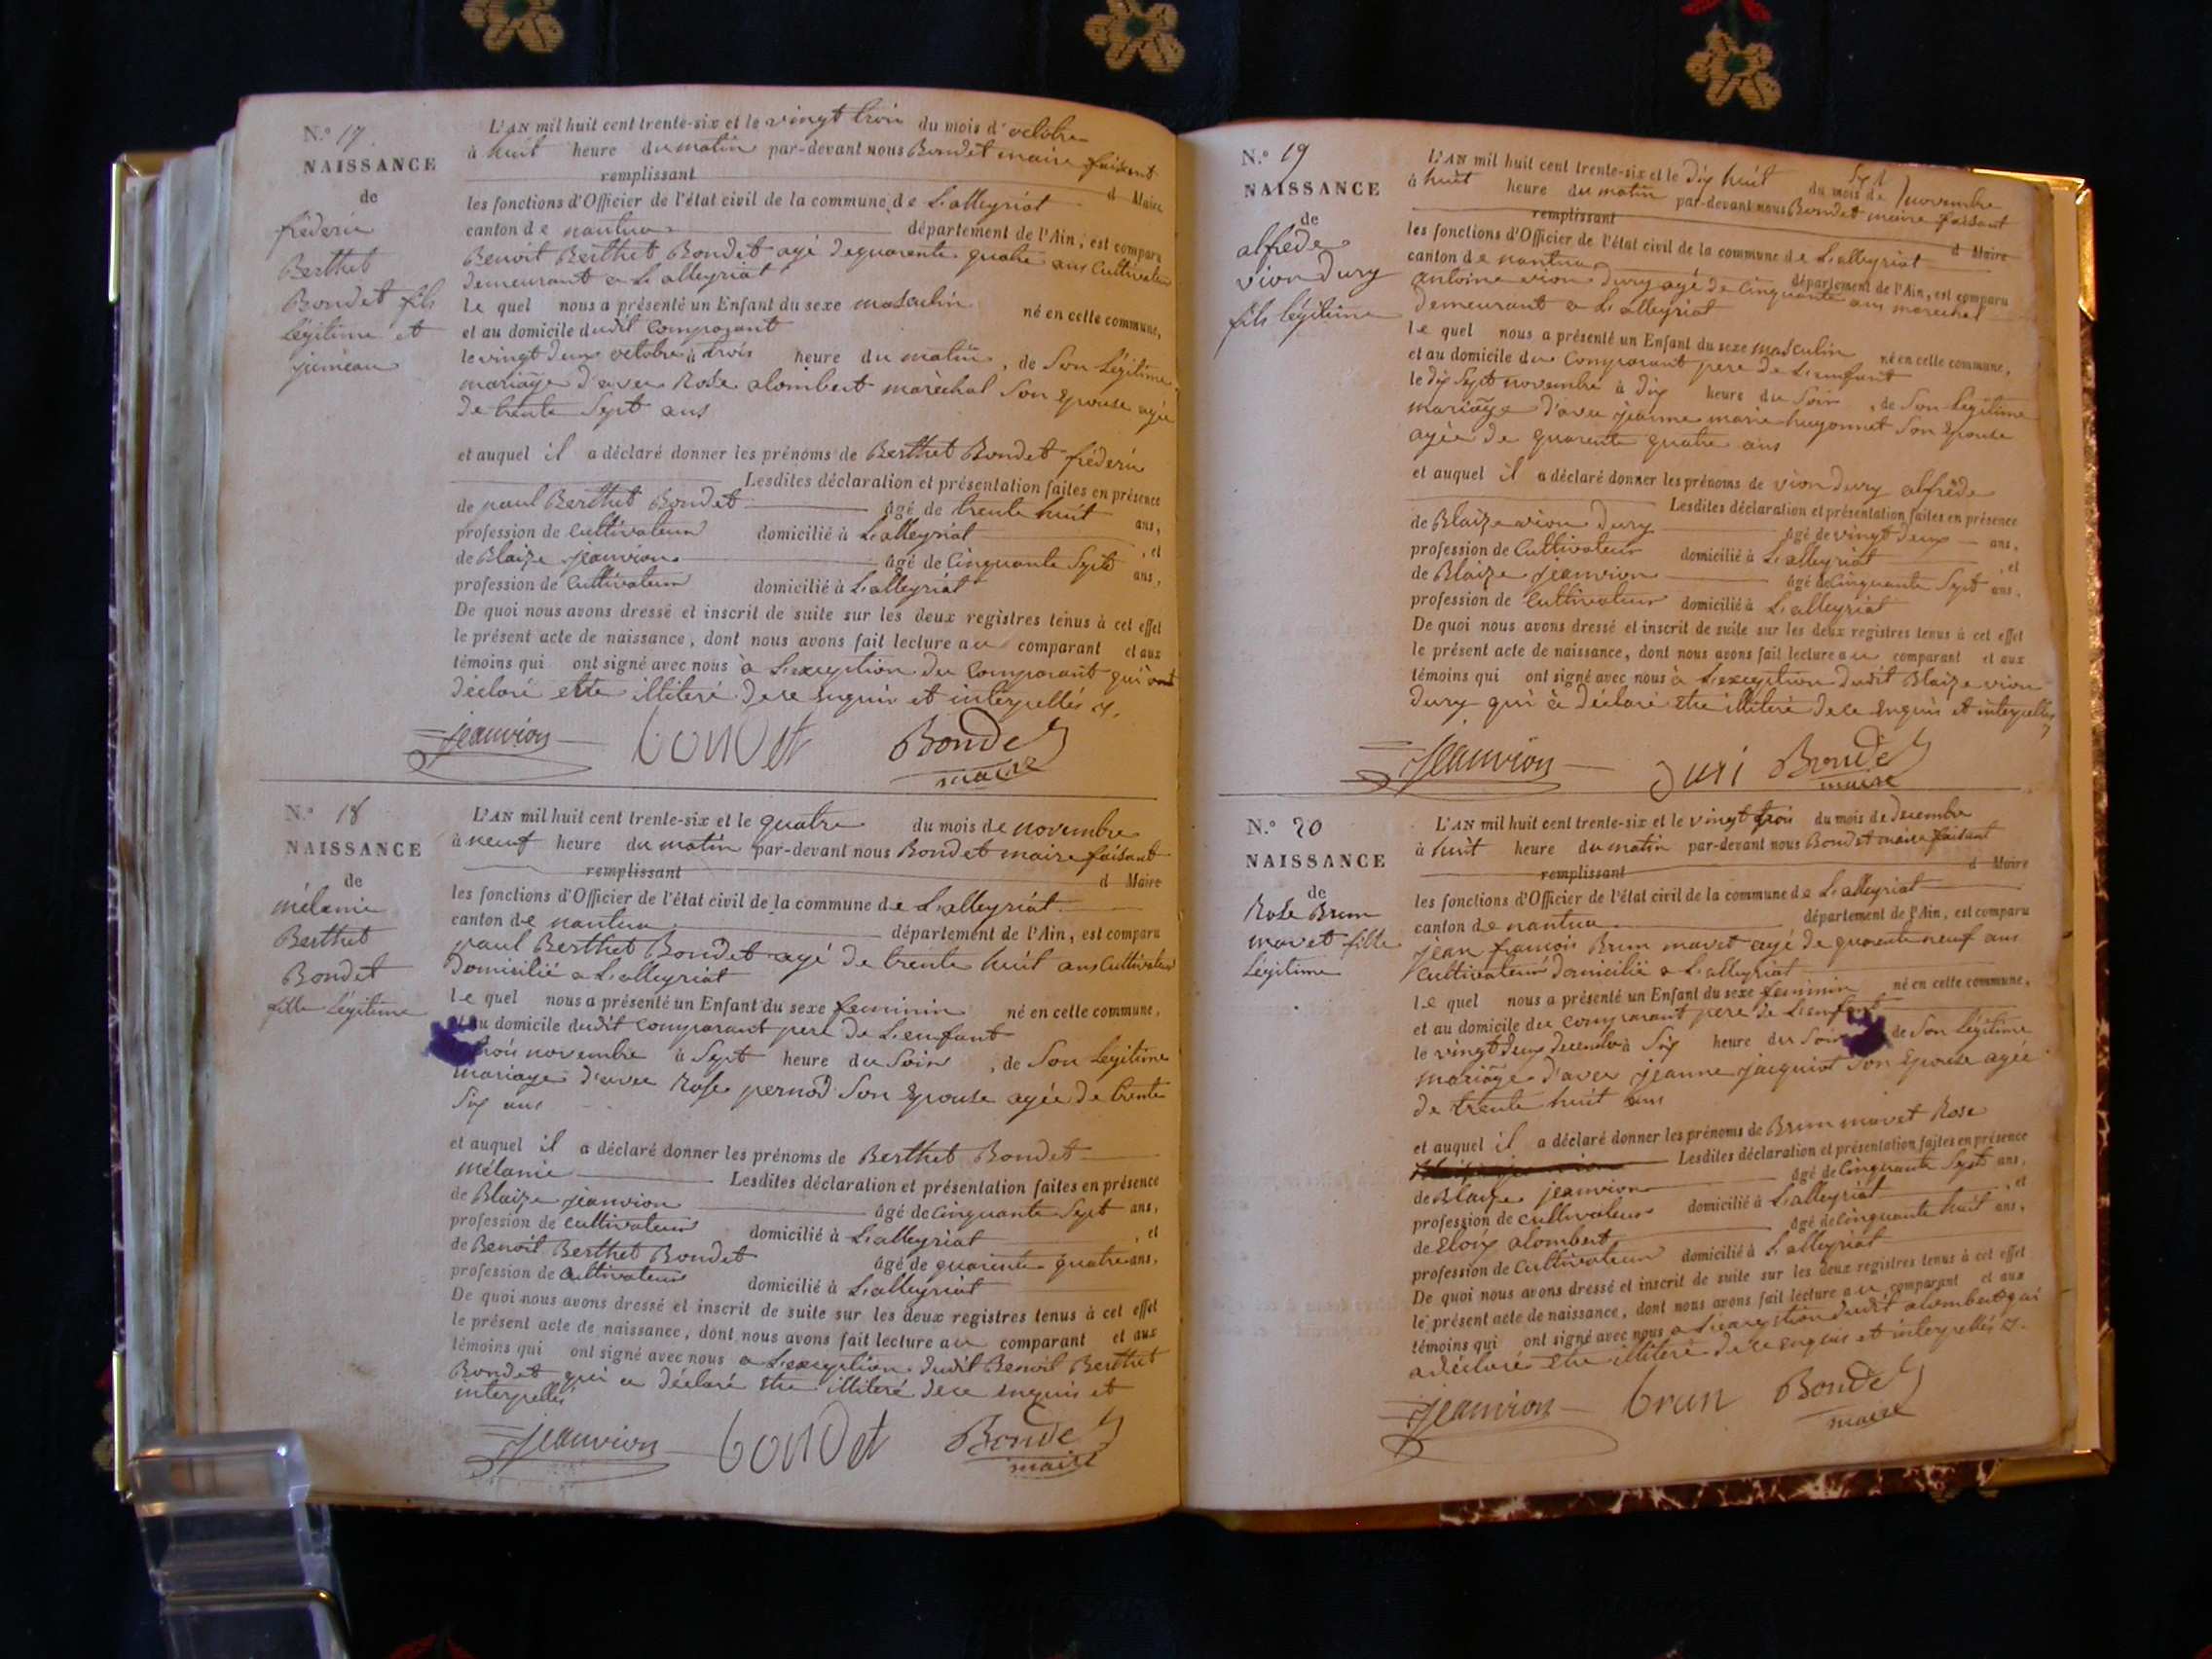 N.º 17
NAISSANCE
de
fréderic
Berthet
Bondet fils
Légitime et
jumeau
L'AN mil huit cent trente-six et le vingt trois du mois d'octobre
à huit heure du matin par-devant nous Bondet maire faisant
remplissant d Maire
les fonctions d'Officier de l'état civil de la commune de L'alleyriat
canton de nantua département de l'Ain, est comparu
Benoit Berthet Bondet agé de quarente quatre ans Cultivateur
demeurant a L'alleyriat
le quel nous a présenté un Enfant du sexe masculin né en cette commune,
et au domicile dudit Comparant
le vingt deux octobre à trois heure du matin, de Son Légitime
mariage d'avec Rose alombert maréchal Son Epouse agée
de trente Sept ans
et auquel il a déclaré donner les prénoms de Berthet Bondet fréderic
Lesdites déclaration et présentation faites en présence
de paul Berthet Bondet âgé de trente huit ans,
profession de Cultivateur domicilié à L'alleyriat, et
de Blaize jeanvion âgé de Cinquante Sept ans,
profession de Cultivateur domicilié à L'alleyriat
De quoi nous avons dressé et inscrit de suite sur les deux registres tenus à cet effet
le présent acte de naissance, dont nous avons fait lecture au comparant et aux
témoins qui ont signé avec nous à L'exception du Comparant qui
déclaré etre illiteré de ce Enquis et interpellés
jeanvion bondet Bondet
maire
N.º 18
NAISSANCE
de
mélanie
Berthet
Bondet
fille Légitime
L'AN mil huit cent trente-six et le quatre du mois de novembre
à neuf heure du matin par-devant nous Bondet maire faisant
remplissant d Maire
les fonctions d'Officier de l'état civil de la commune de L'alleyriat
canton de nantua département de l'Ain, est comparu
paul Berthet Bondet agé de trente huit ans Cultivateur
Domicilié a L'alleyriat
le quel nous a présenté un Enfant du sexe feminin né en cette commune,
et au domicile dudit comparant pere de L'enfant
trois novembre à Sept heure du Soir, de Son Légitime
mariage d'avec Rose pernod Son Epouse agée de trente
Six ans
et auquel il a déclaré donner les prénoms de Berthet Bondet
mélanie Lesdites déclaration et présentation faites en présence
de Blaize jeanvion âgé de Cinquante Sept ans,
profession de Cultivateur domicilié à L'alleyriat, et
de Benoit Berthet Bondet âgé de quarente quatre ans,
profession de Cultivateur domicilié à L'alleyriat
De quoi nous avons dressé et inscrit de suite sur les deux registres tenus à cet effet
le présent acte de naissance, dont nous avons fait lecture au comparant et aux
témoins qui ont signé avec nous a L'exception dudit Benoit Berthet
Bondet qui a déclaré etre illiteré de ce enquis et
interpellés
jeanvion bondet Bondet
maire
N.º 19
NAISSANCE
de
alfrède
vion Dury
fils légitime
L'AN mil huit cent trente-six et le dix huit du mois de novembre
à huit heure du matin par-devant nous Bondet maire faisant
remplissant d Maire
les fonctions d'Officier de l'état civil de la commune de L'alleyriat
canton de nantua département de l'Ain, est comparu
antoine vion Dury agé de Cinquante ans marechal
demeurant a L'alleyriat
le quel nous a présenté un Enfant du sexe masculin né en cette commune,
et au domicile du Comparant pere de L'enfant
le dix Sept novembre à dix heure du Soir, de Son Legitime
mariage d'avec jeanne marie hugonnet Son Epouse
agée de quarente quatre ans
et auquel il a déclaré donner les prénoms de vion Dury alfrède
Lesdites déclaration et présentation faites en présence
de Blaize vion Dury âgé de vingt Deux ans,
profession de Cultivateur domicilié à L'alleyriat, et
de Blaize jeanvion âgé de Cinquante Sept ans,
profession de Cultivateur domicilié à L'alleyriat
De quoi nous avons dressé et inscrit de suite sur les deux registres tenus à cet effet
le présent acte de naissance, dont nous avons fait lecture au comparant et aux
témoins qui ont signé avec nous à L'exception dudit Blaize vion
Dury qui à déclaré etre illiteré de ce Enquis et interpellés
jeanvion Duri Bondet
maire
N.º 20
NAISSANCE
de
Rose Brun
mavet fille
Légitime
L'AN mil huit cent trente-six et le vingt trois du mois de Decembre
à huit heure du matin par-devant nous Bondet maire faisant
remplissant d Maire
les fonctions d'Officier de l'état civil de la commune de L'alleyriat
canton de nantua département de l'Ain, est comparu
jean françois Brun mavet agé de quarente neuf ans
Cultivateur domicilié a L'alleyriat
le quel nous a présenté un Enfant du sexe feminin né en cette commune,
et au domicile du comparant pere de L'enfant
le vingt Deux Decembre à Six heure du Soir de Son Légitime
mariage d'avec jeanne jacquiot Son Epouse agée
de trente huit ans
et auquel il a déclaré donner les prénoms de Brun mavet Rose
Lesdites déclaration et présentation faites en présence
de Blaize jeanvion âgé de Cinquante Sept ans,
profession de Cultivateur domicilié à L'alleyriat, et
de Eloix alombert âgé de Cinquante huit ans,
profession de Cultivateur domicilié à L'alleyriat
De quoi nous avons dressé et inscrit de suite sur les deux registres tenus à cet effet
le présent acte de naissance, dont nous avons fait lecture au comparant et aux
témoins qui ont signé avec nous a L'exception dudit alombert qui
a déclaré etre illiteré de ce enquis et interpellés
jeanvion brun Bondet
maire